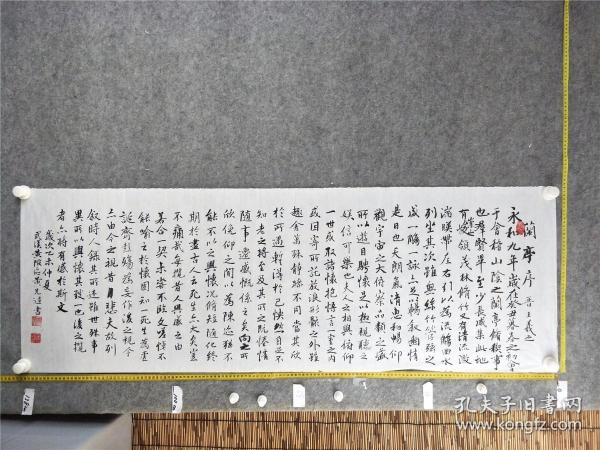 蘭亭序 晉王羲之
永和九年歲在癸丑暮春之初會
于會稽山陰之蘭亭脩禊事
也群賢畢至少長咸集此地
有崇山峻領茂林脩竹又有清流激
湍暎帶左右引以為流觴曲水
列坐其次雖無絲竹管弦之
盛一觴一詠亦足以暢叙幽情
是日也天朗氣清惠和暢仰
觀宇宙之大俯察品類之盛
所以遊目騁懷足以極視聽之
娛信可樂也夫人之相與俯仰
一世或取諸懷抱悟言一室之內
或因寄所託放浪形骸之外雖
趣舍萬殊靜躁不同當其欣
於所遇暫得於己快然自足不
知老之將至及其所之既惓情
隨事遷感慨係之矣向之所
欣俛仰之間以為陳迹猶不
能不以之興懷況脩短隨化終
期於盡古人云死生亦大矣豈
不痛哉每攬昔人興感之由
若合一契未嘗不臨文嗟悼不
能喻之於懷固知一死生為虛
誕齊彭殤為妄作後之視今
亦由今之視昔悲夫故列
叙時人錄其所述雖世殊事
異所以興懷其致一也後之攬
者亦將有感於斯文
歲次乙未仲夏
孔夫子旧书网
www.kongfz.com